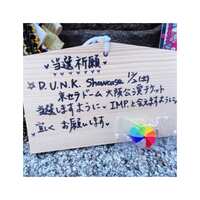 当選祈願
D.U.N.K. Showcase 11/2(土)
京セラドーム大阪公演チケット
当選しますように。IMP.と会えますように
宜しくお願いします